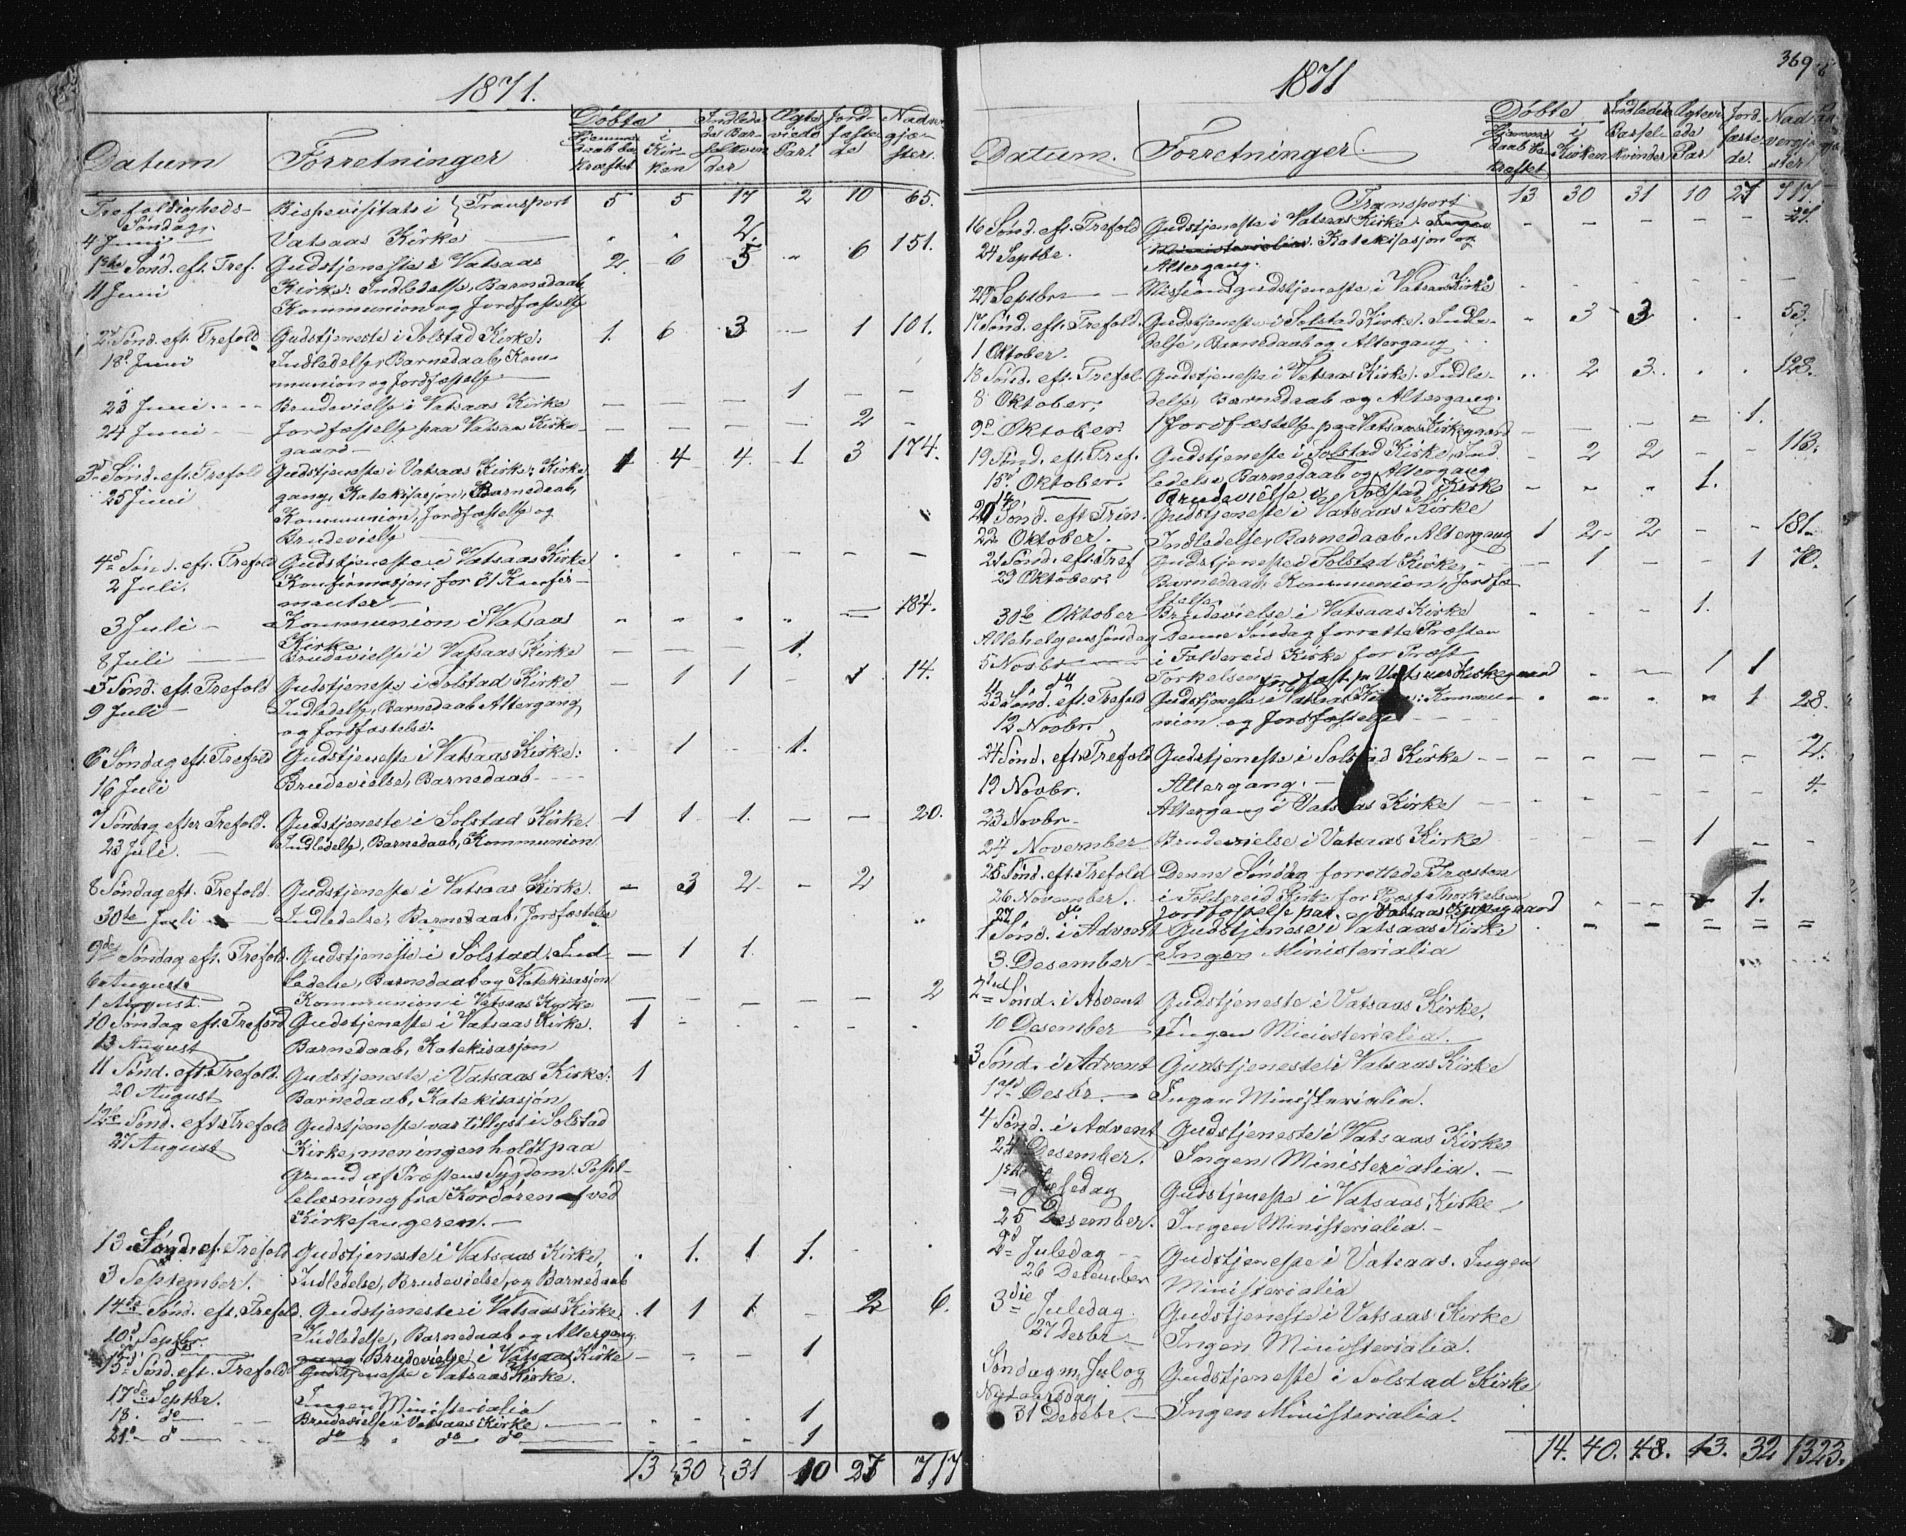 1871.
Datum Forretninger Døbte Hjemmedaab bekræftet i Kirken Indledede Barselkvinder Ægteviede Par Jordfæstede Nadvergjæster.
Trefoldigheds- Bispevisitats i Transport 5 5 17 2 10 65.
Søndag.
4 Juni Vatsaas Kirke 2.
1ste Sønd. eft. Tref. Gudstjeneste i Vatsaas 2. 6 5 " 6 151.
11 Juni Kirke: Indledelse, Barnedaab,
Kommunion og Jordfæstelse
2d Sønd. eft. Trefold Gudstjeneste i Solstad Kirke: 1. 6 3 — 1 101.
18 Juni Indledelse, Barnedaab, Kom-
munion og Jordfæstelse
23 Juni Brudevielse i Vatsaas Kirke — — — 1 — —
24 Juni Jordfæstelse paa Vatsaas Kirke- — — — — 2 —
gaard
3d Sønd. eft. Trefold Gudstjeneste i Vatsaas Kirke: Kirke- 1 4 4. 1 3 174.
25 Juni gang, Katekisasjon, Barnedaab,
Kommunion, Jordfæstelse og
Brudevielse
4d Sønd. eft. Trefold Gudstjeneste i Vatsaas Kirke
2 Juli. Konfirmasjon for 61 Konfir-
manter
3 Juli Kommunion i Vatsaas 184.
Kirke
8 Juli Brudevielse i Vatsaas Kirke — — — 1.
5 Sønd. eft. Trefold Gudstjeneste i Solstad Kirke — 1 1 — 1 14.
9 Juli Indledelse, Barnedaab Altergang
og Jordfæstelse.
6 Søndag eft. Trefold Gudstjeneste i Vatsaas Kirke: 1 1.
16 Juli Brudevielse, Barnedaab
7 Søndag efter Trefold. Gudstjeneste i Solstad Kirke. 1 1 1. — — 20.
23 Juli. Indledelse, Barnedaab, Kommunion
8 Søndag eft. Trefold. Gudstjeneste i Vatsaas Kirke. — 3 2 — 2
30te Juli Indledelse, Barnedaab, Jordfæstelse
9de Søndag eft. Trefold. Gudstjeneste i Solstad. Ind- — 1 1.
6 August ledelse, Barnedaab og Katekisasjon
1 August Kommunion i Vatsaas Kirke — — — — — 2
10 Søndag eft. Trefold Gudstjeneste i Vatsaas Kirke. 1
13 August Barnedaab, Katekisasjon
11 Sønd. eft. Trefold. Gudstjeneste i Vatsaas Kirke: 1
20 August Barnedaab, Katekisasjon
12te Sønd. eft. Trefold Gudstjeneste var tillyst i Solstad
27 August Kirke, men ingen holdt paa
Grund af Præstens Sygdom. Postil-
lelæsning fra Kordøren af ved
Kirkesangeren.
13 Sønd. ef. Trefold Gudstjeneste i Vatsaas Kirke, 1. 1 1.
3 September. Indledelse, Brudevielse, og Barnedaab
14de Sønd. eft. Trefold. Gudstjeneste i Vatsaas Kirke. 1 1 1 — 2 6.
10d Septbr. Indledelse, Barnedaab og Altergang
Brudevielse i Vatsaas Kirke — — — 1
15d Sønd. eft. Trefold Gudstjeneste i Vatsaas Kirke.
17de Septbr. Ingen Ministerialia
18. do Brudevielse i Vatsaas Kirke 1
21. do do do do 1
13 30 31 10 27 717
1871
369
Datum. Forretninger. Døbte Hjemmedaab bekræftet i Kirken Indledede Barselkvinder Ægteviede Par Jordfæstede Nadvergjæster
Transport 13 30 31 10 27 717.
16 Sønd. eft. Trefold Gudstjeneste i Vatsaas Kirke. Ingen 27.
24 Septbe. Ministerialia. Katekisasjon og
Altergang.
29 Septbr Missionsgudstjeneste i Vatsaas Kirke
17 Sønd. eft. Trefold. Gudstjeneste i Solstad Kirke. Indle- 3 3 53.
1 Oktober. delse, Barnedaab og Altergang
18 Sønd. eft. Trefol. Gudstjeneste i Vatsaas Kirke. Indle- 2 3. 123.
8 Oktober. delse, Barnedaab og Altergang.
9d Oktober. Jordfæstelse paa Vatsaas Kirkegaard — — — = 1.
19 Sønd. eft. Tref. Gudstjeneste i Solstad Kirke, Ind- 2 2 113.
15d Oktober. ledelse, Barnedaab og Altergang
14 Brudevielse i Solstad Kirke 1.
20 Sønd. eft. Trin. Gudstjeneste i Vatsaas Kirke
22 Oktober. Indledelse, Barnedaab, Altergang 1 2 2 — — 181.
21 Sønd. eft. Tref Gudstjeneste i Solstad Kirke, 1 1 70.
29 Oktober. Barnedaab, Kommunion, Jordfæ-
stelse
30te Oktober Brudevielse i Vatsaas Kirke 1.
Allehelgenssøndag Denne Søndag forrette Præsten
5 Novbr i Foldereid Kirke for Præst
Torkelsen Jordfæst. p. Vatsaas Kirkegaard 1 1
23 Sønd. eft. Trefold Gudstjeneste i Vatsaas Kirke: Kommu- 1 28.
12 Novbr. nion og Jordfæstelse
24 Sønd. eft. Trefold Gudstjeneste i Solstad Kirke 2.
19 Novbr. Altergang. 4.
23 Novbr Altergang i Vatsaas Kirke
24 November Brudevielse i Vatsaas Kirke 1
25 Sønd. eft. Trefold Denne Søndag forrettede Præsten
26 November. i Foldereid Kirke for Præst Thorkelsen
27 do Jordfæstelse paa Vatsaas Kirkegaard 1.
1 Sønd. i Advent Gudstjeneste i Vatsaas Kirke
3. Desember Ingen Ministerialia
2den Sønd. i Advent Gudstjeneste i Vatsaas Kirke,
10 Desember Ingen Ministerialia.
3 Sønd. i Advent Gudstjeneste i Vatsaas Kirke
17d Desbr. Ingen Ministerialia.
4 Sønd. i Advent Gudstjeneste i Vatsaas Kirke
24 Desember. Ingen Ministerialia.
1ste Juledag Gudstjeneste i Vatsaas Kirke
25 Desember. Ingen Ministerialia.
2d Juledag Gudstjeneste i Vatsaas. Ingen
26 Desember Ministerialia
3die Juledag Gudstjeneste i Vatsaas Kirke
27 Desbr Ingen Ministerialia.
Søndag m. Jul og Gudstjeneste i Solstad Kirke
Nytaarsdag
31 Desebr. Ingen Ministerialia.
14. 40. 48. 13. 32 1323.